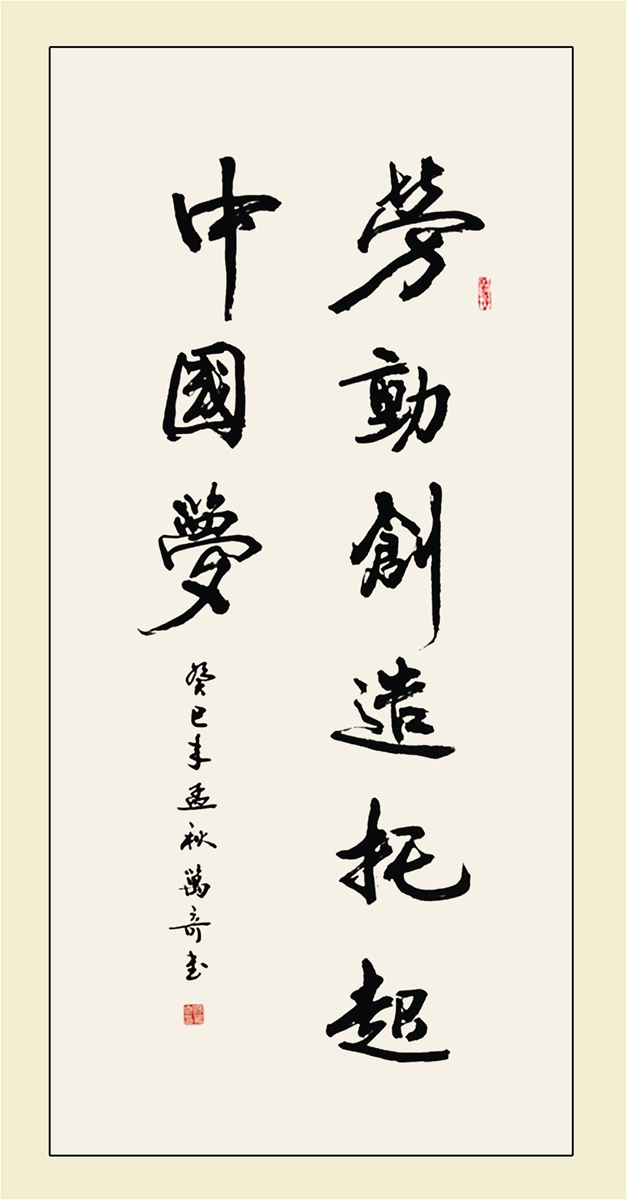 勞動創造托起
中國夢
癸巳年孟秋萬奇书